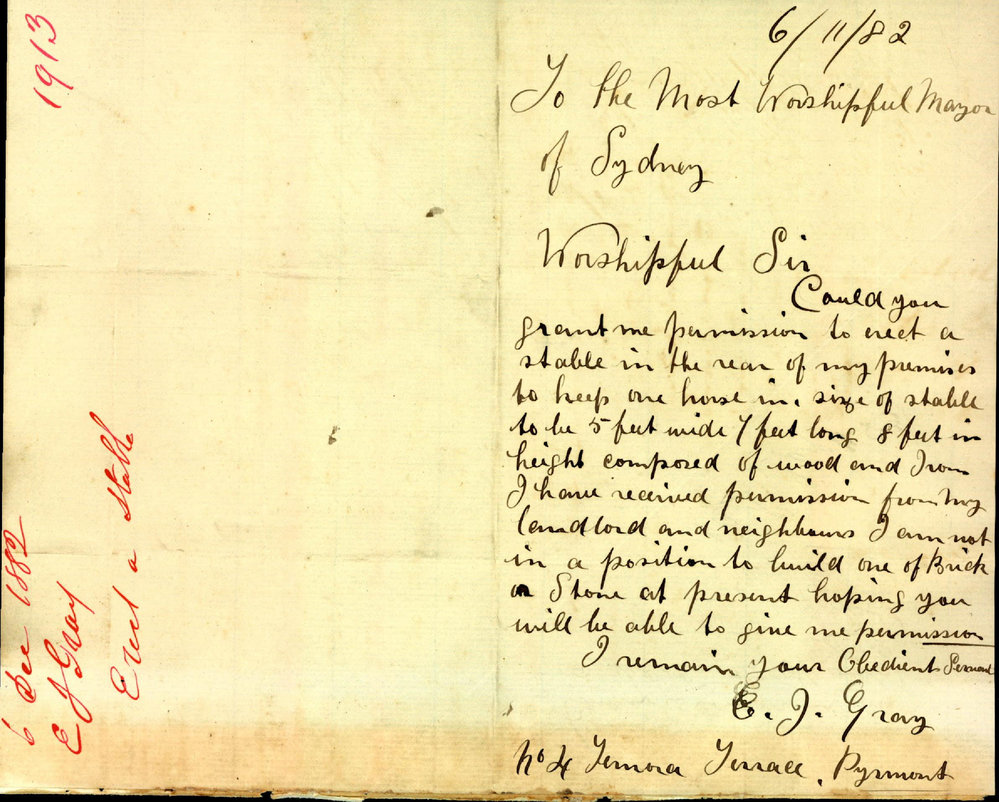 6/11/82
To the Most Worshipful Mayor
of Sydney
Worshipful Sir
Could you
grant me permission to erect a
stable in the rear of my premises
to keep one horse in. size of stable
to be 5 feet wide 7 feet long 8 feet in
height composed of wood and Iron
I have received permission from my
landlord and neighbours I am not
in a position to build one of Brick
or Stone at present hoping you
will be able to give me permission
I remain your Obedient Servant
E. J. Gray
No 4 Temora Terrace, Pyrmont
1913
6 Dec 1882
E J Gray
Erect a stable